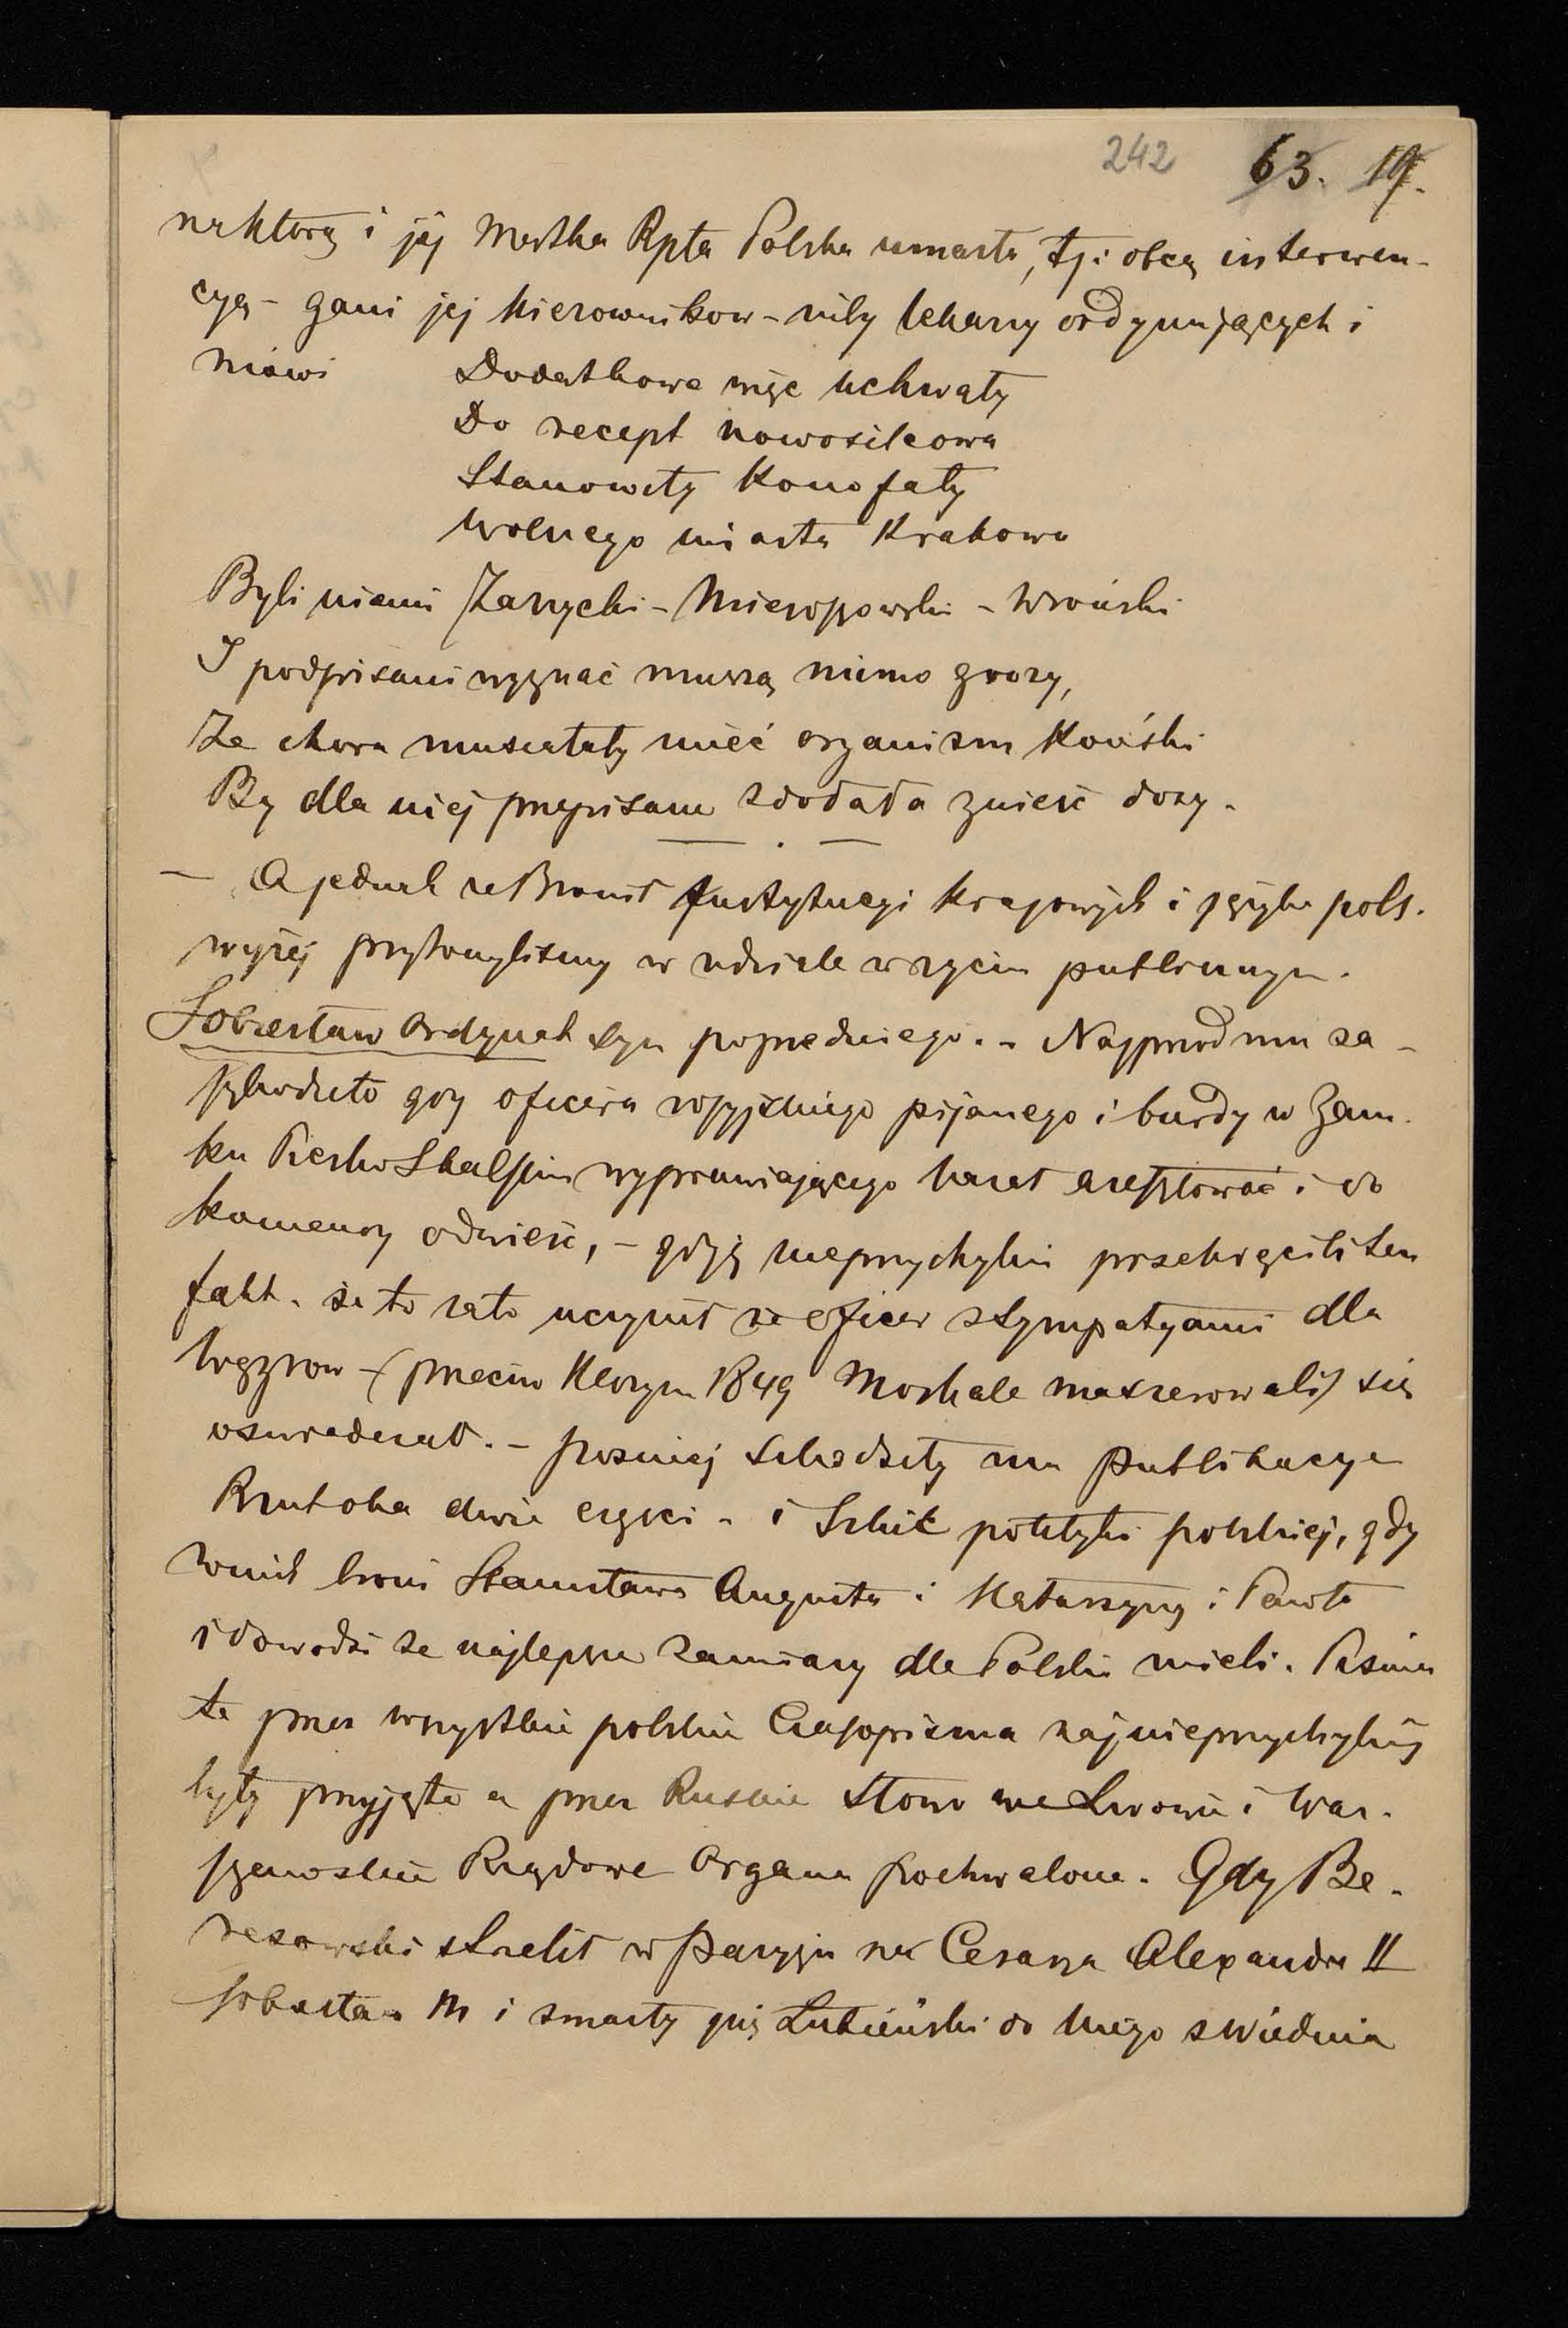 242 63. 19.
na którą i jej Matka Rpta Polska umarła, tj: obcą interwen-
cyą - gani jej kierownikow - niby lekarzy ordynujących i
mówi Dodatkowe więc uchwały
Do recept nowosilcowa
Stanowiły Konofały
Wolnego miasta Krakowa
Byli niemi Zarzycki - Mieroszowski - Wroński
I podpisani wyznać muszą mimo grozy,
Że chora musiałaby mieć organizm Koński
By dla niej przepisane zdołała znieść dozy.
— A jednak że Bronił Instytucyi krajowych i języka pols.
wyżej przytoczyliśmy w udziale w życiu publicznym.
Sobiesław Ordynat syn poprzedniego. - Najprzod mu za-
szkodziło gdy oficera rossyjskiego pijanego i burdy w Zam-
ku Piesko Skalskim wyprawiającego kazał aresztować i do
komendy odwieść, - gdyż nieprzychylni przekręcili ten
fakt. że to zato uczynił że oficer z sympatyami dla
Węgrow - (przeciw Którym 1849 Moskale maszerowali) się
oświadczał. - pozniej szkodziły mu publikacye
Rzut oka dwie części - i Szkic polityki polskiej, gdy
w nich broni Stanisława Augusta i Katarzyny i Pawła
i dowodzi że najlepsze zamiary dla Polski mieli. Pisma
te przez wszystkie polskie Czasopisma najnieprzychylniej
były przyjęte a przez Ruskie Słowo we Lwowie i War-
szawskie Rządowe Organa pochwalone. Gdy Be-
rezowski strzelił w Paryżu na Cesarza Alexandra II
Sobiesław M i zmarły guż Łubieński do kniego z Wiednia